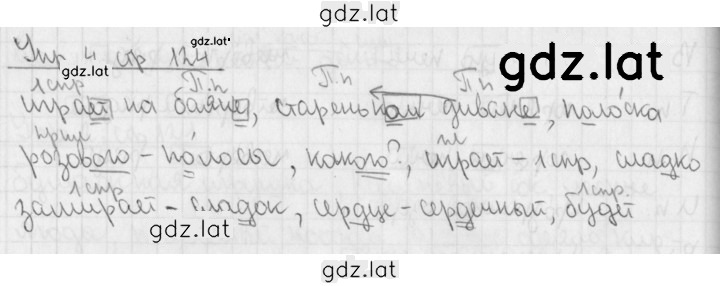 gdz.lat
Упр 4 стр 124
gdz.lat
gdz.lat
gdz.lat
1 спр. П.п П.п П.п
играет на баяне, стареньком диване, полоска
розового - полосы, какого?, играет - 1 спр, сладко
1 спр 1 спр.
замирает - сладок, сердце - сердечный, будет
gdz.lat